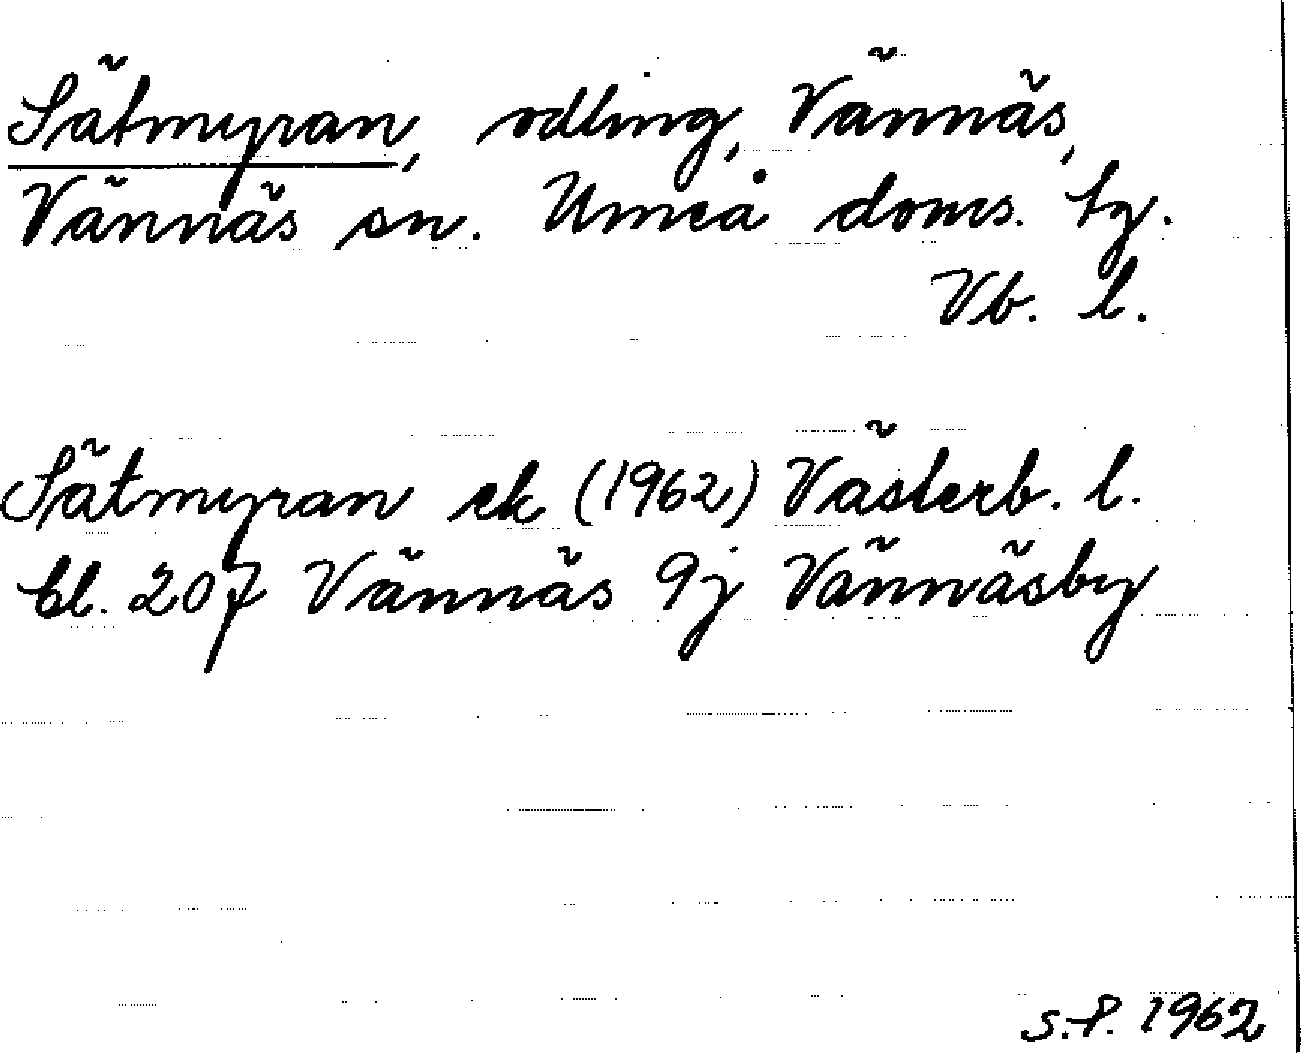 Sätmyran, odling, Vännäs,
Vännäs sn. Umeå doms. tg.
Vb. l.
Sätmyran ek (1962) Västerb. l.
bl. 207 Vännäs 9j Vännäsby
S.P. 1962